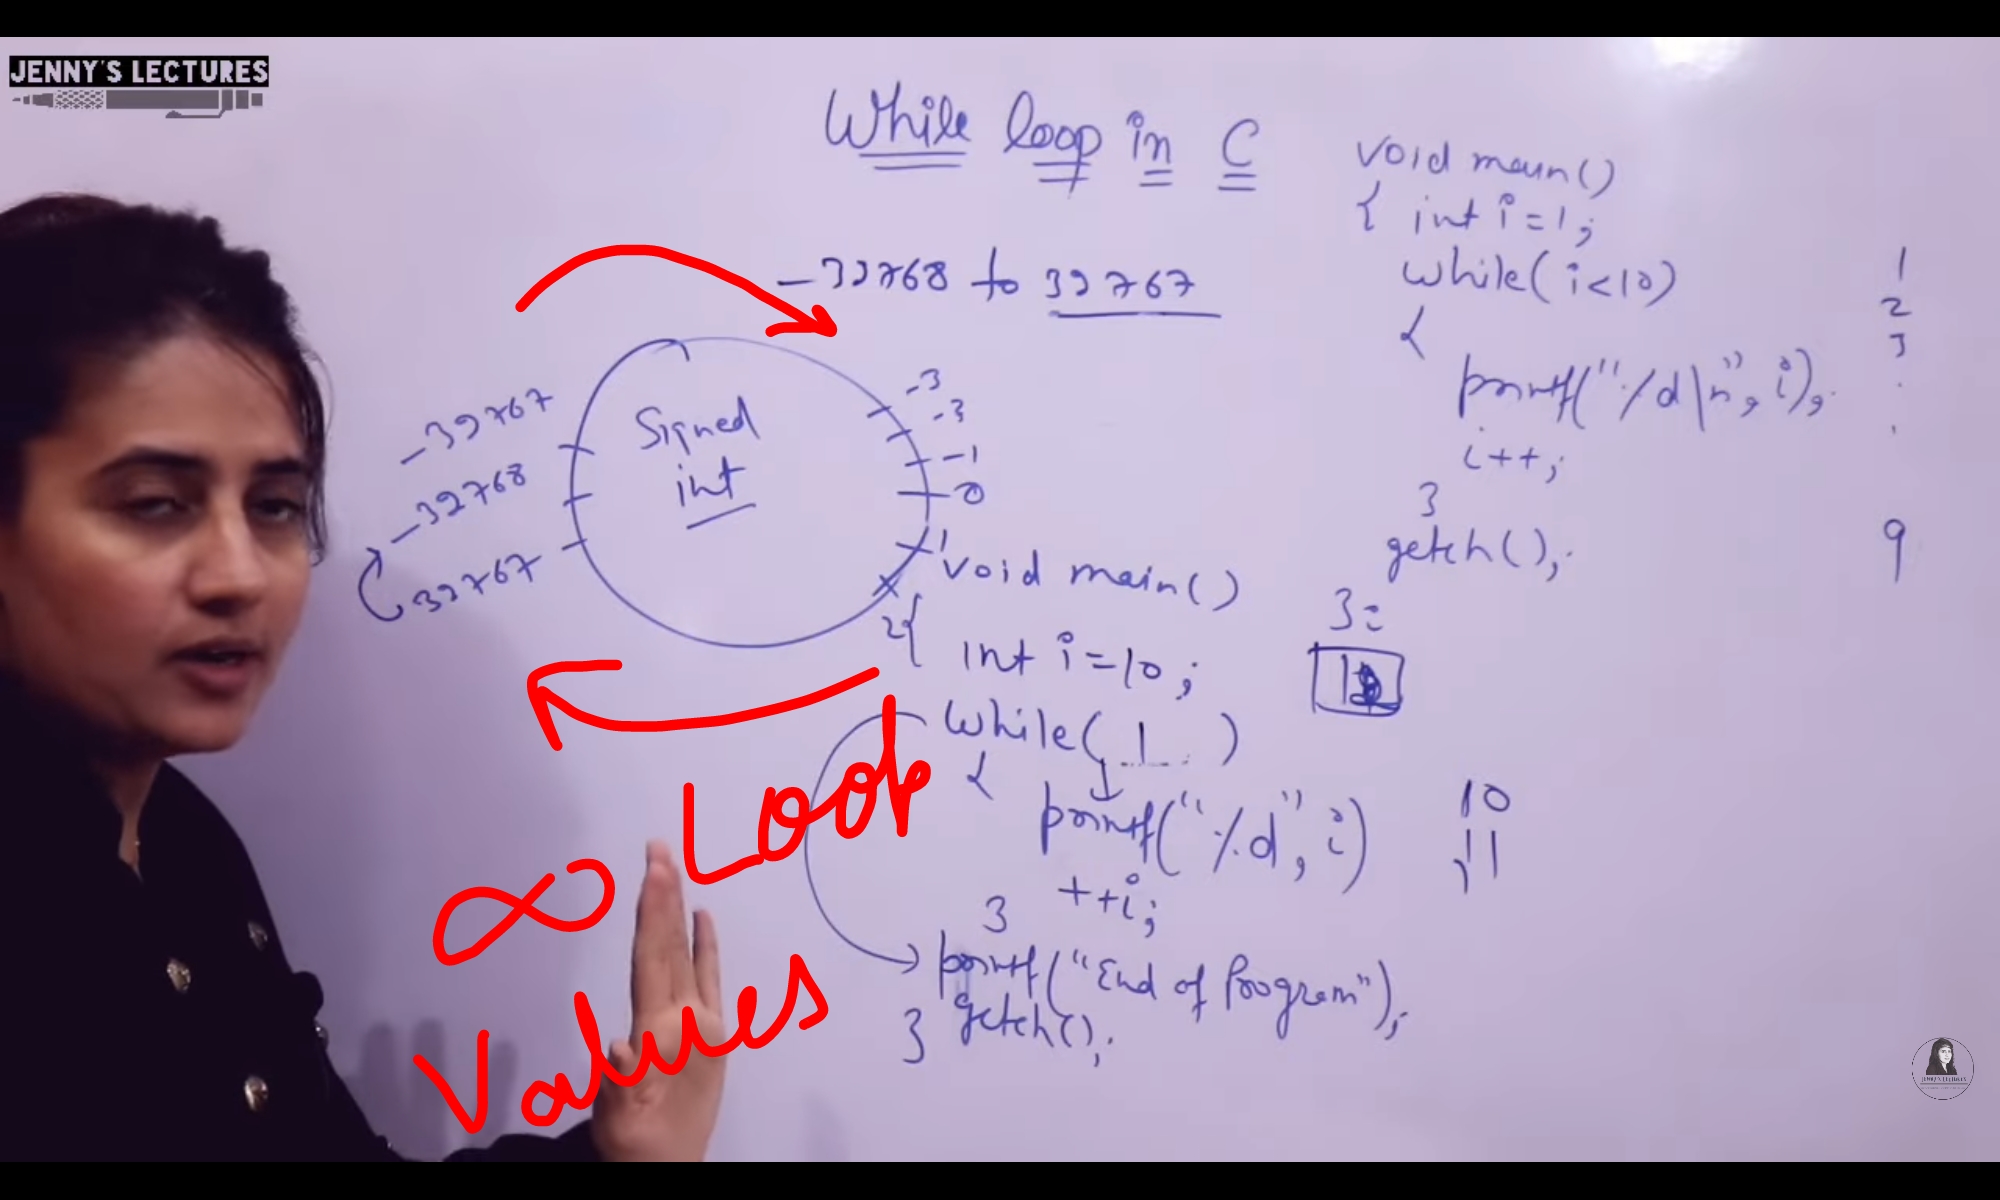 JENNY'S LECTURES
While loop in C
-32768 to 32767
Signed
int
-32767
-32768
32767
-3
-2
-1
0
1
2
void main()
{ int i=1;
while(i<10)
{
printf("%d\n", i);
i++;
}
getch();
}
1
2
3
.
.
9
void main()
{
int i=10;
while( 1 )
{
printf("%d", i)
++i;
}
printf("End of Program");
getch();
}
10
11
∞ Loop
Values